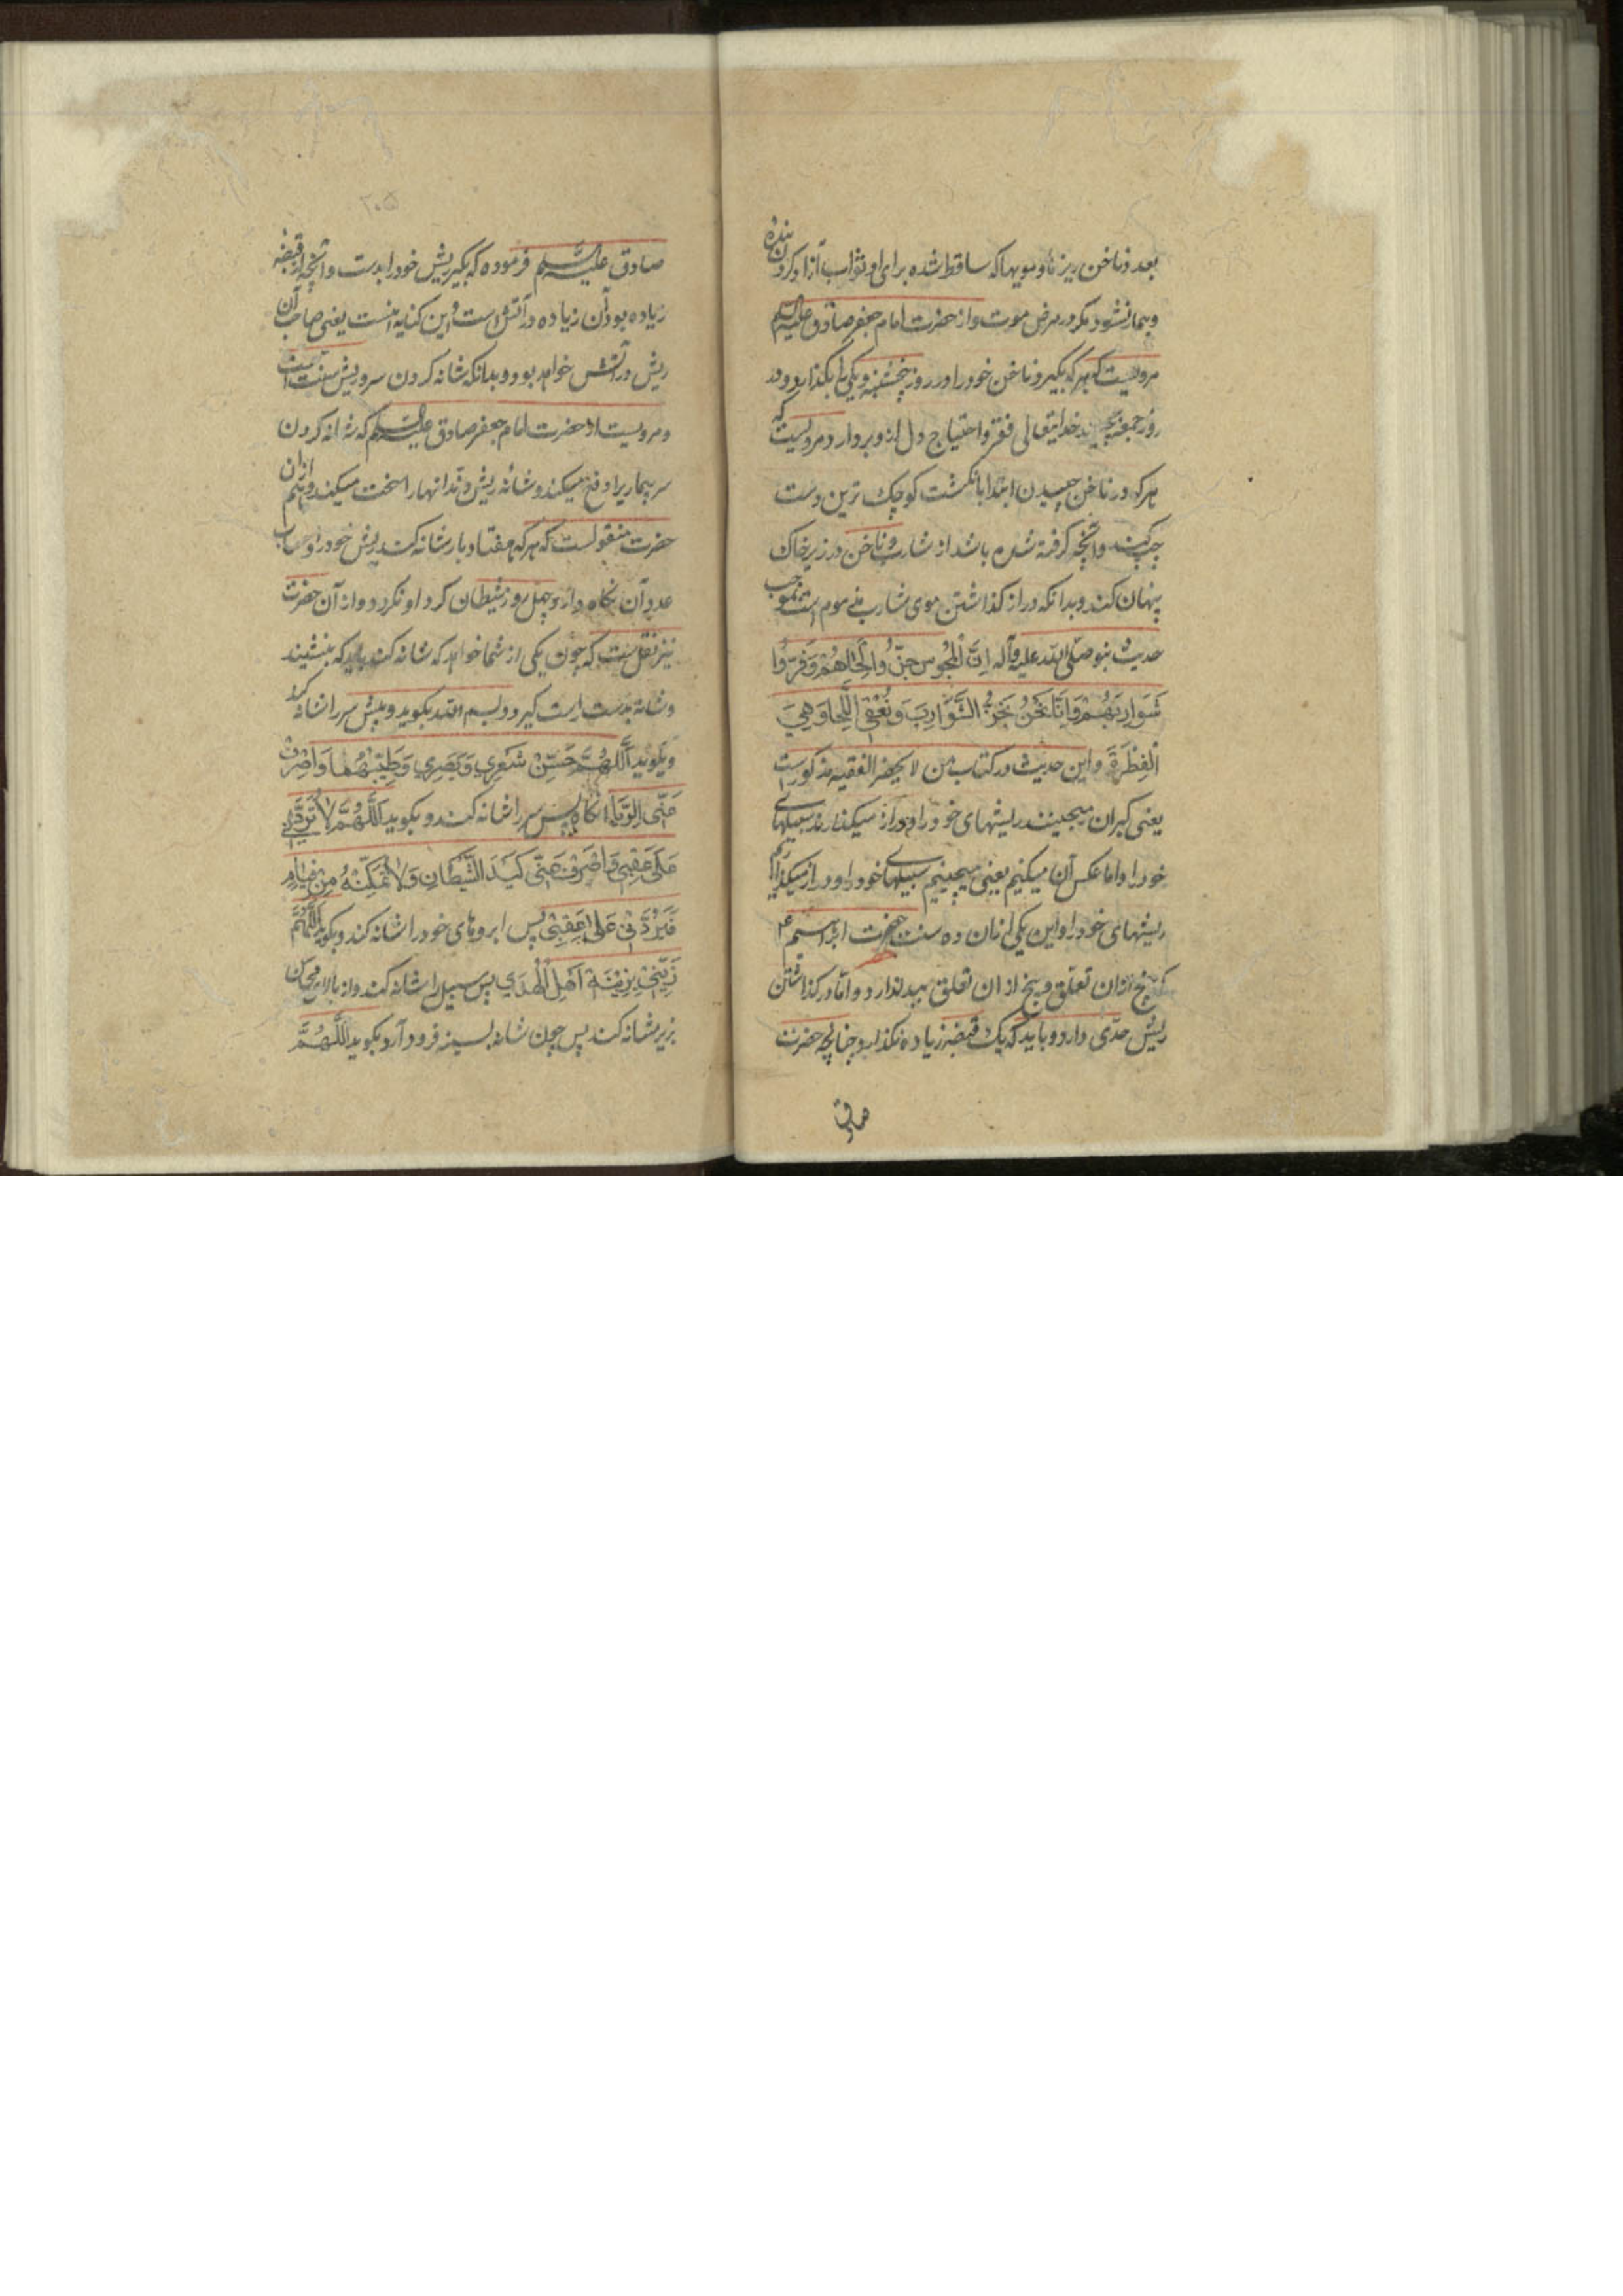 بعدد ناخن ریزها و مویها که ساقط شده برای او ثواب آزاد کردن بنده
و بیمار نشود مگر در مرض موت و از حضرت امام جعفر صادق علیه السلم
مرویست که هر که بگیرد ناخن خود را در روز پنجشنبه و یکی را بگذارد و در
روز جمعه بچیند خدایتعالی فقر و احتیاج دل از و بردارد و مرویست که
هر که در ناخن چیدن ابتدا بانگشت کوچک ترین دست
چپ کند و آنچه گرفته شده باشد از شارب و ناخن در زیر خاک
پنهان کند و بدانکه دراز کذاشتن موی شارب مذموم است بموجب
حدیث نبو صلی الله علیه وآله اِنَّ الْمَجُوسَ جَزُّوا لِحَاهُمْ وَفَرُّوا
شَوَارِبَهُمْ وَاِنَّا نَحْنُ نَجُزُّ الشَّوَارِبَ وَنُعْفِی اللِّحَا وَهِیَ
الْفِطْرَةُ و این حدیث در کتاب من لا یحضر الفقیه مذکورست
یعنی کبران میچینند ریشهای خود را و دراز میکذارند سبیلهای
خود را و اما عکس آن میکنیم یعنی میچینیم سبیلهای خود را و دراز میکذاریم
ریشهای خود را و این یکی از ان ده سنت حضرت ابراهیم ع
که پنج از ان تعلق و پنج از ان تعلق ببدن دارد و اما در کذاشتن
ریش حدی دارد و باید که یک قبضه زیاده نکذارد چنانچه حضرت
صادق
۲۰۵
صادق علیه السلم فرموده که بگیر ریش خود را بدست و آنچه از قبضه
زیاده بود آن زیاده در آتش است و این کنایه است یعنی صاحب آن
ریش در آتش خواهد بود و بدانکه شانه کردن سر و ریش سنت است
و مرویست از حضرت امام جعفر صادق علیه السلم که شانه کردن
سر بیماریرا دفع میکند و شانه ریش دندانها را سخت میکند و هم از ان
حضرت منقولست که هر که هفتاد بار شانه کند ریش خود را و حساب
عدد آن نگاه دارد چهل روز شیطان گرد او نگردد و از آن حضرت
نیز نقلست که چون یکی از شما خواهد که شانه کند باید که بنشیند
و شانه بدست راست گیرد و بسم الله بگوید و پیش سر را شانه کند
و بگوید اَللّهُمَّ حَسِّنْ شَعْرِي وَبَصَرِي وَطَيِّبْهُمَا وَاصْرِفْ
عَنِّي الْوَبَاءَ انگاه پس سر را شانه کند و بگوید اَللَّهُمَّ لَا تَرُدَّنِي
عَلَى عَقِبِي وَاصْرِفْ عَنِّي كَيْدَ الشَّيْطَانِ وَلَا تُمَكِّنْهُ مِنْ قِيَادِي
فَيَرُدَّنِي عَلَى عَقِبِي پس ابروهای خود را شانه کند و بگوید اَللَّهُمَّ
زَيِّنِّي بِزِينَةِ اَهْلِ الْهُدَي پس سبیل را شانه کند و از بالا
بزیر شانه کند پس چون شانه بسینه فرود آرد بگوید اَللَّهُمَّ